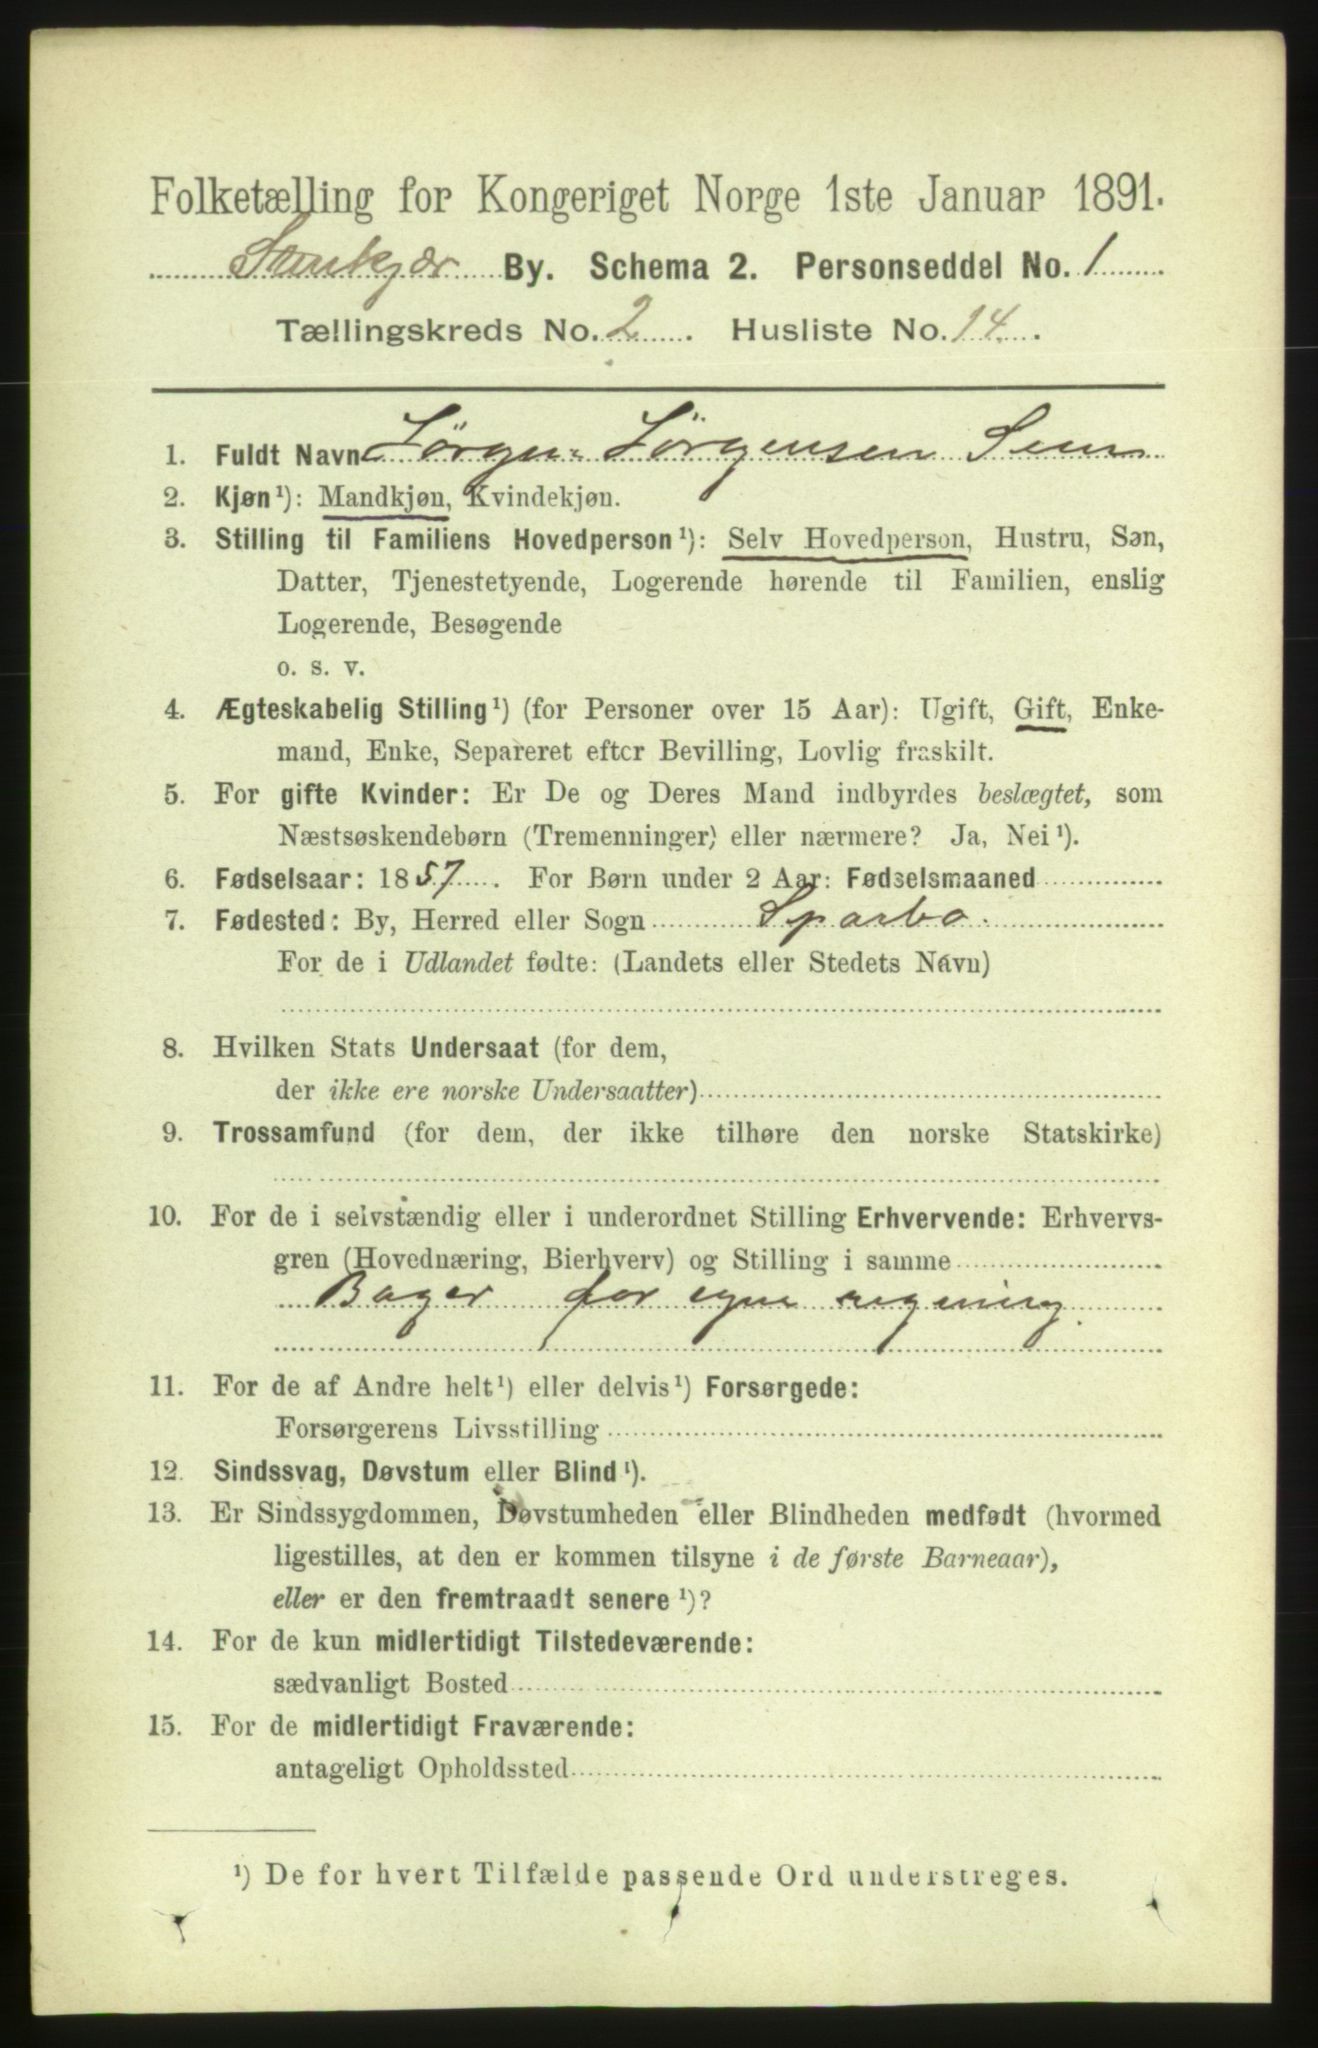 Folketælling for Kongeriget Norge 1ste Januar 1891.
Stenkjær By. Schema 2. Personseddel No. 1
Tællingskreds No. 2. Husliste No. 14.
1. Fuldt Navn Jørgen Jørgensen Sem
2. Kjøn¹): Mandkjøn, Kvindekjøn.
3. Stilling til Familiens Hovedperson¹): Selv Hovedperson, Hustru, Søn,
Datter, Tjenestetyende, Logerende hørende til Familien, enslig
Logerende, Besøgende
o. s. v.
4. Ægteskabelig Stilling¹) (for Personer over 15 Aar): Ugift, Gift, Enke-
mand, Enke, Separeret efter Bevilling, Lovlig fraskilt.
5. For gifte Kvinder: Er De og Deres Mand indbyrdes beslægtet, som
Næstsøskendebørn (Tremenninger) eller nærmere? Ja, Nei¹).
6. Fødselsaar: 1857. For Børn under 2 Aar: Fødselsmaaned
7. Fødested: By, Herred eller Sogn Sparbo.
For de i Udlandet fødte: (Landets eller Stedets Navn)
8. Hvilken Stats Undersaat (for dem,
der ikke ere norske Undersaatter)
9. Trossamfund (for dem, der ikke tilhøre den norske Statskirke)
10. For de i selvstændig eller i underordnet Stilling Erhvervende: Erhvervs-
gren (Hovednæring, Bierhverv) og Stilling i samme
Bager for egne regning.
11. For de af Andre helt¹) eller delvis¹) Forsørgede:
Forsørgerens Livsstilling
12. Sindssvag, Døvstum eller Blind¹).
13. Er Sindssygdommen, Døvstumheden eller Blindheden medfødt (hvormed
ligestilles, at den er kommen tilsyne i de første Barneaar),
eller er den fremtraadt senere¹)?
14. For de kun midlertidigt Tilstedeværende:
sædvanligt Bosted
15. For de midlertidigt Fraværende:
antageligt Opholdssted
¹) De for hvert Tilfælde passende Ord understreges.